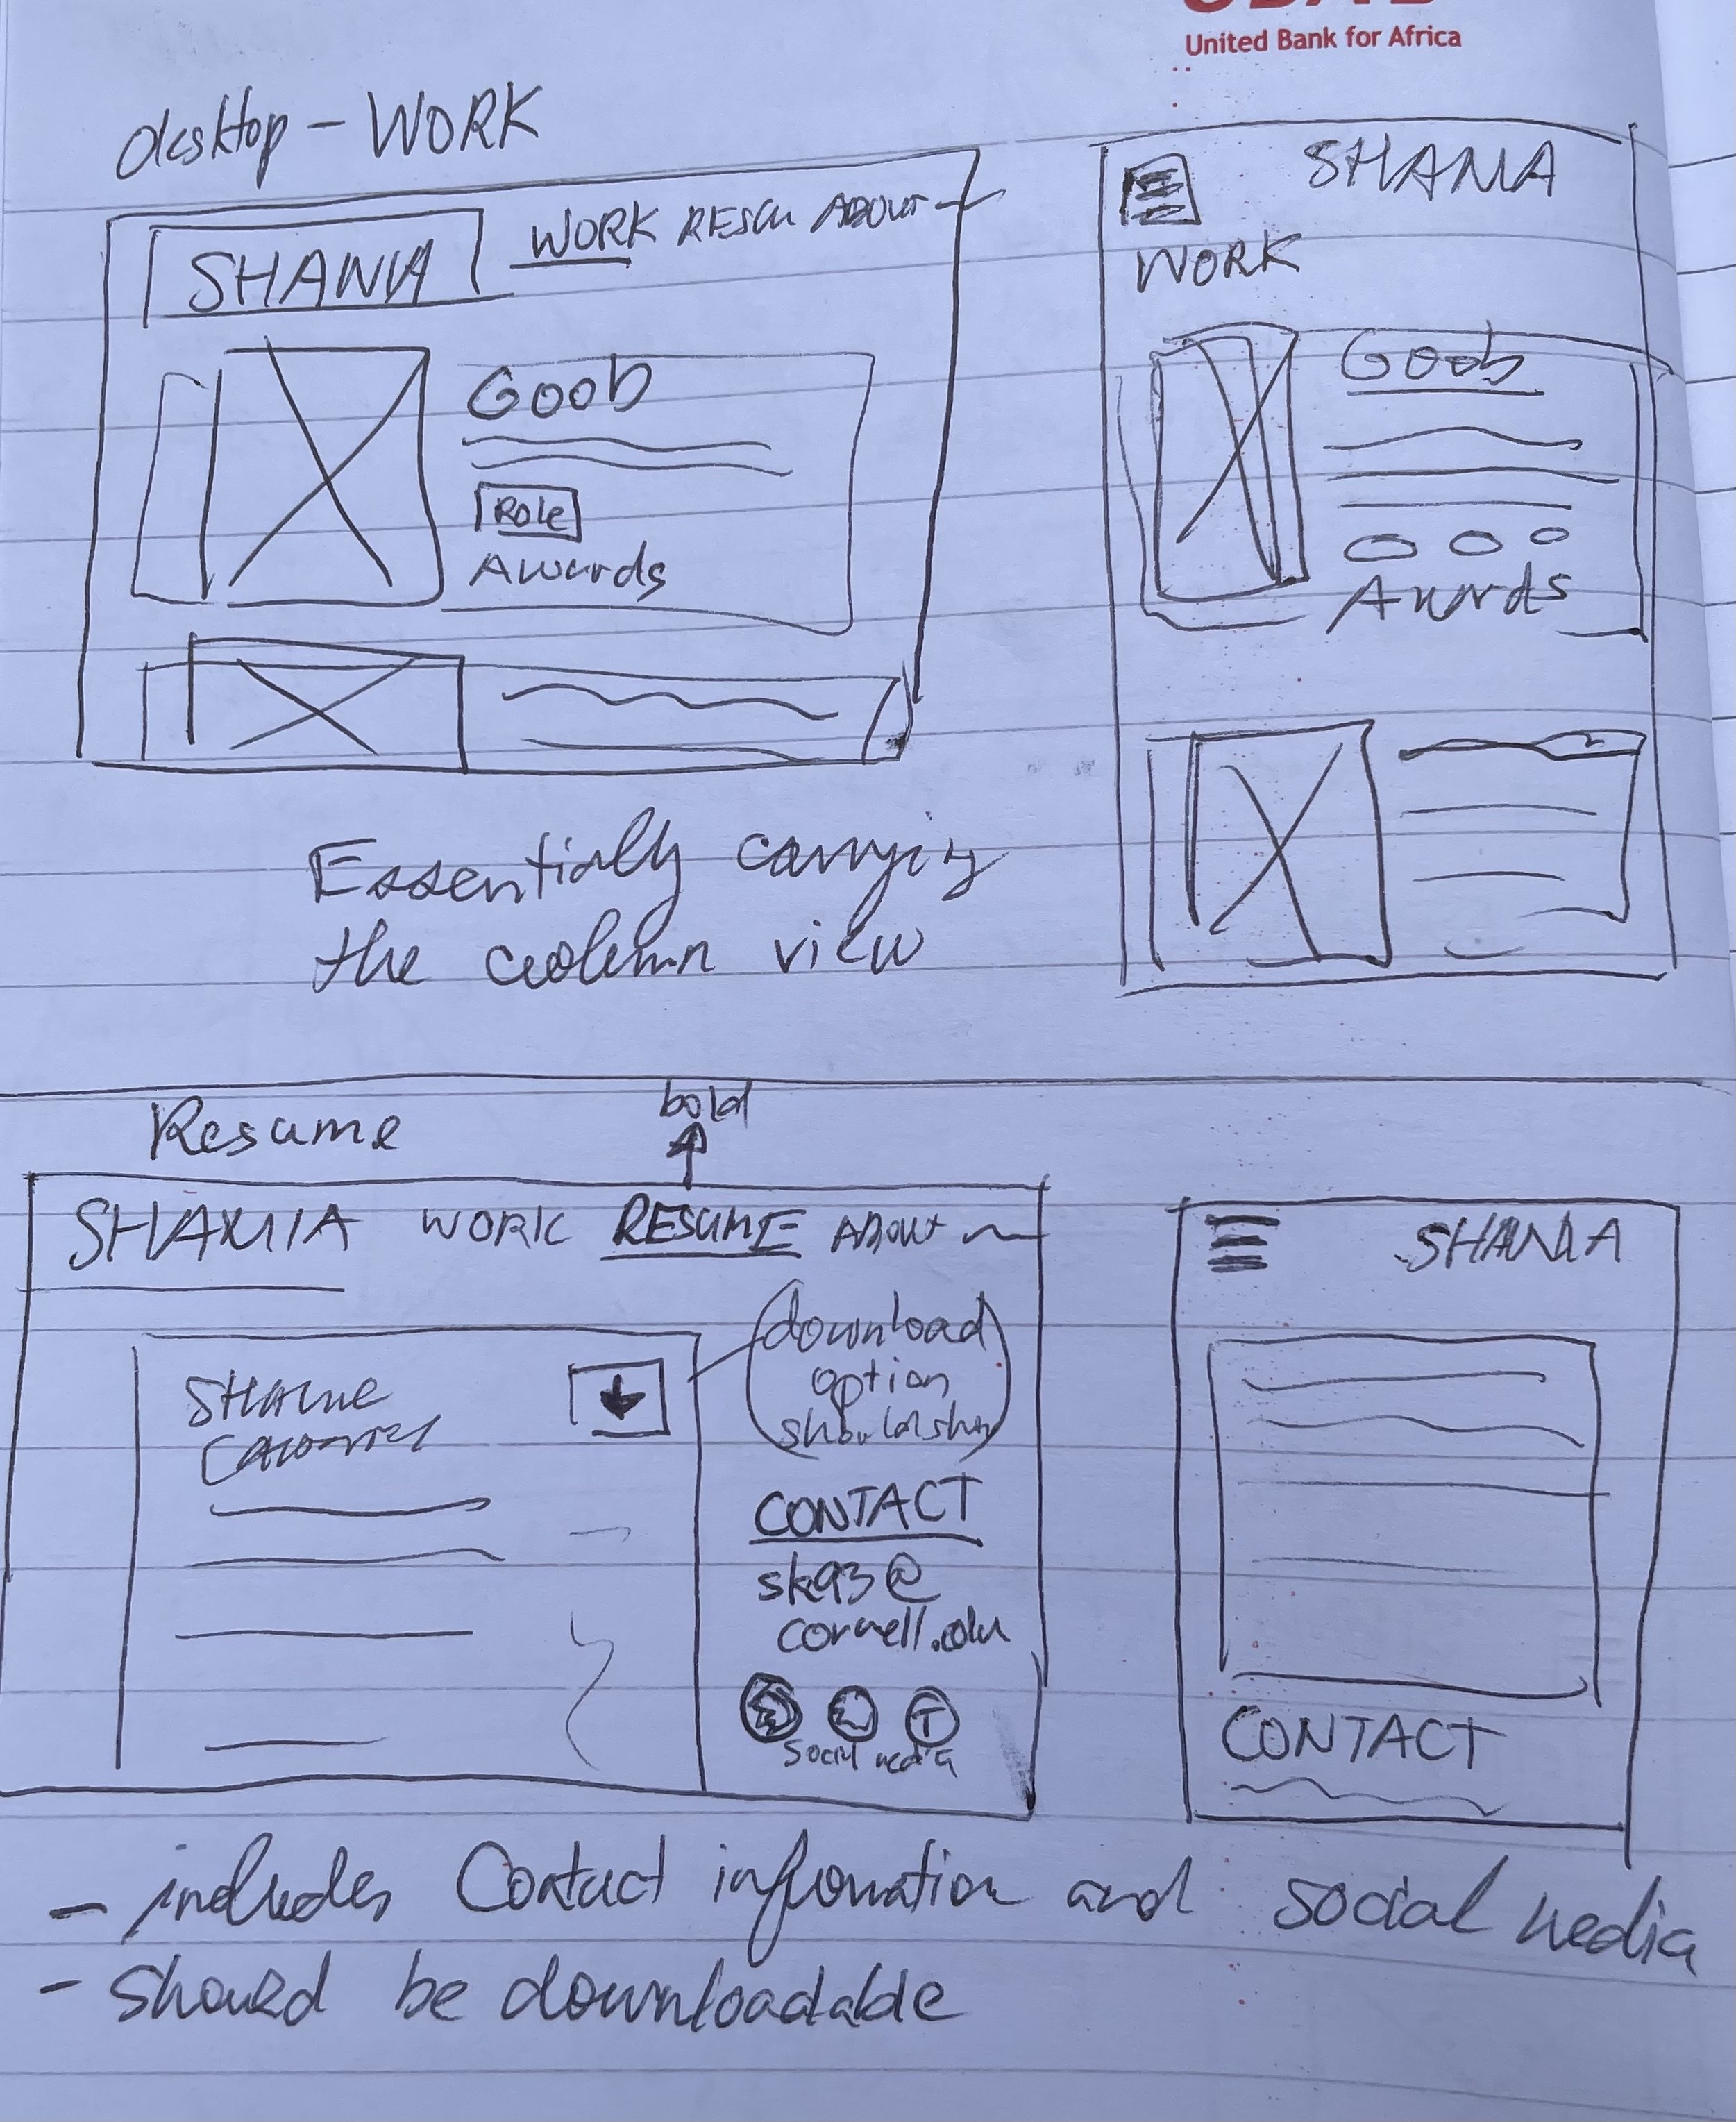 United Bank for Africa
desktop - WORK
SHANIA WORK RESU ABOUT
Goob
Role
Awards
SHANIA
WORK
Goob
Awards
Essentially carrying
the column view
Resume
bold
SHANIA WORK RESUME ABOUT
download
option
CONTACT
sk93@
cornell.edu
T
social media
SHANIA
CONTACT
- includes Contact information and social media
- should be downloadable